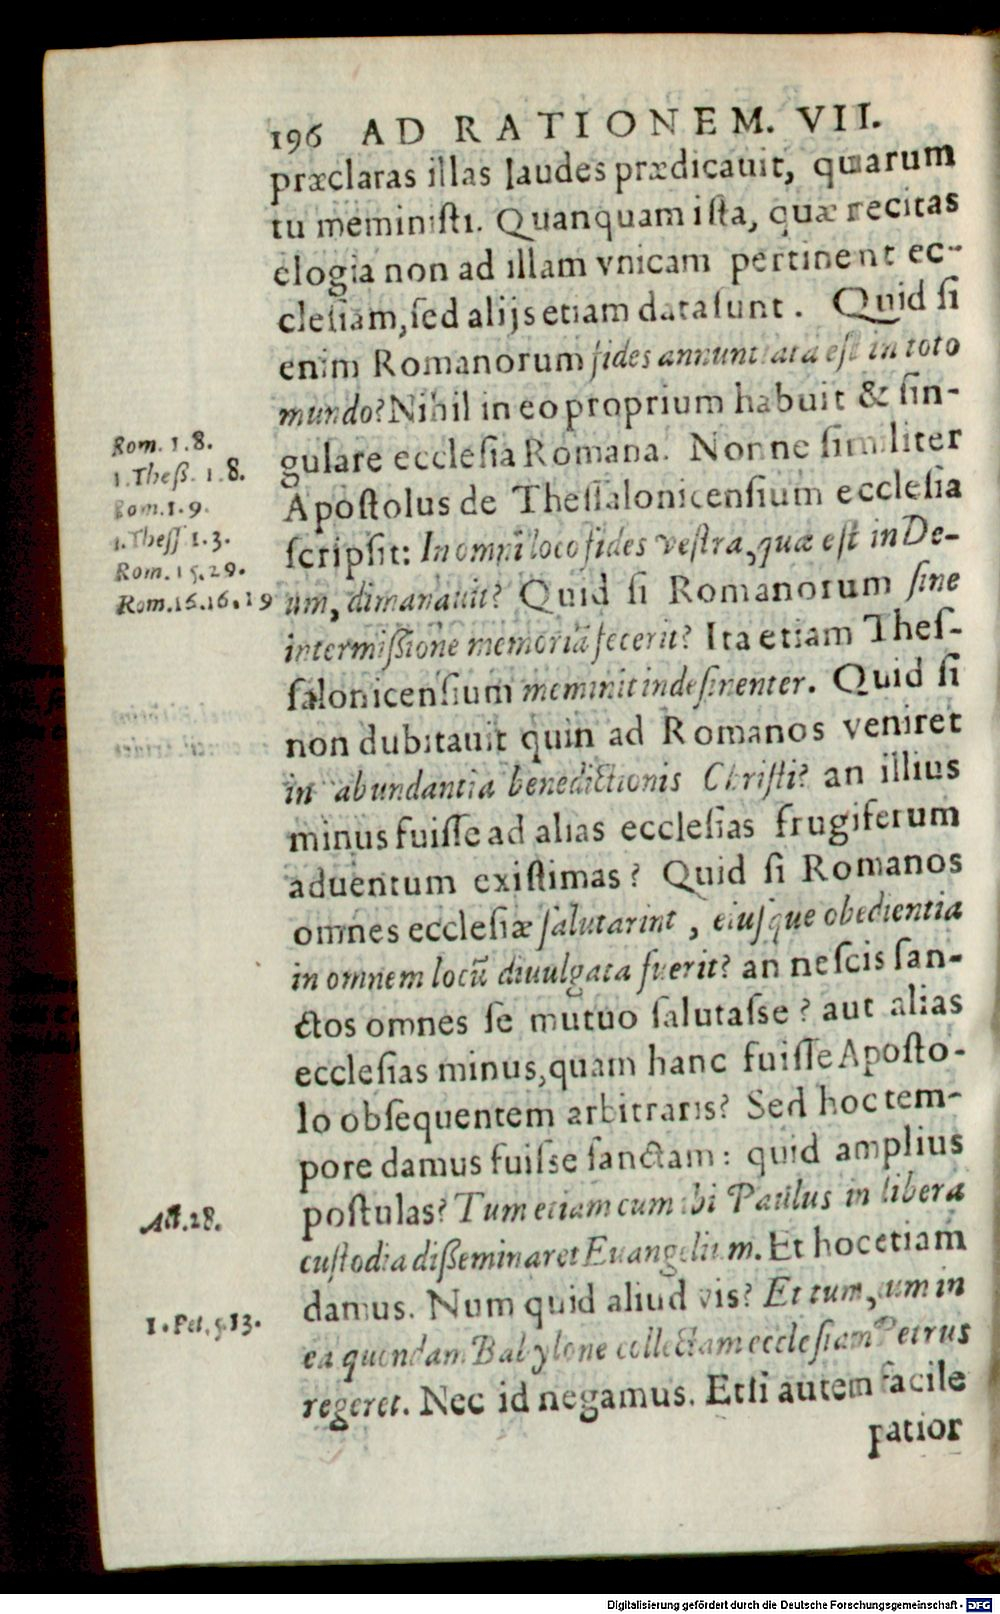 196 AD RATIONEM. VII.
præclaras illas laudes prædicauit, quarum
tu meministi. Quanquam ista, quæ recitas
elogia non ad illam vnicam pertinent ec-
clesiam, sed alijs etiam data sunt. Quid si
enim Romanorum fides annuntiata est in toto
mundo? Nihil in eo proprium habuit & sin-
gulare ecclesia Romana. Nonne similiter
Apostolus de Thessalonicensium ecclesia
scripsit: In omni loco fides vestra, quæ est in De-
um, dimanauit? Quid si Romanorum sine
intermißione memoriã fecerit? Ita etiam Thes-
salonicensium meminit indesinenter. Quid si
non dubitauit quin ad Romanos veniret
in abundantia benedictionis Christi? an illius
minus fuisse ad alias ecclesias frugiferum
aduentum existimas? Quid si Romanos
omnes ecclesiæ salutarint, eiusque obedientia
in omnem locũ diuulgata fuerit? an nescis san-
ctos omnes se mutuo salutasse? aut alias
ecclesias minus, quam hanc fuisse Aposto-
lo obsequentem arbitraris? Sed hoc tem-
pore damus fuisse sanctam: quid amplius
postulas? Tum etiam cum ibi Paulus in libera
custodia dißeminaret Euangelium. Et hoc etiam
damus. Num quid aliud vis? Et tum, cum in
ea quondam Babylone collectam ecclesiam Petrus
regeret. Nec id negamus. Etsi autem facile
patior
Rom. 1.8.
1. Theß. 1.8.
Rom. 1.9.
1. Thess. 1.3.
Rom. 15.29.
Rom. 16.16.19
Act. 28.
1. Pet. 5.13.
Digitalisierung gefördert durch die Deutsche Forschungsgemeinschaft - DFG